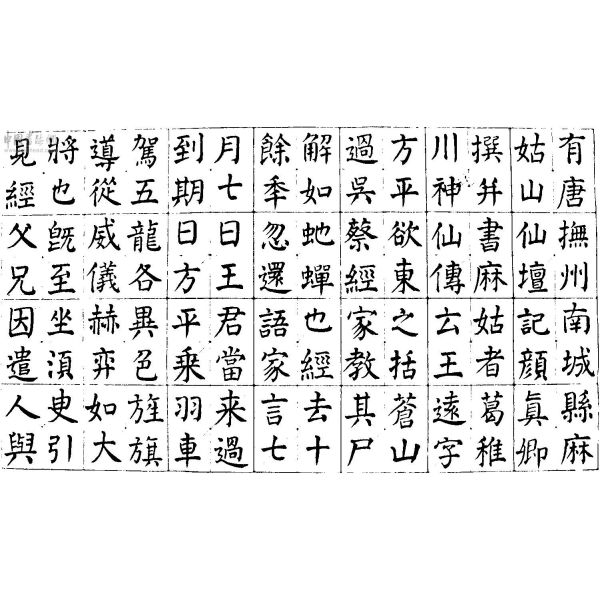 有唐撫州南城縣麻
姑山仙壇記顔眞卿
撰并書麻姑者葛稚
川神仙傳云王遠字
方平欲東之括蒼山
過吳蔡經家教其尸
解如虵蟬也經去十
餘秊忽還語家言七
月七日王君當来過
到期日方平乘羽車
駕五龍各異色旌旗
導從威儀赫弈如大
將也既至坐須臾引
見經父兄因遣人與